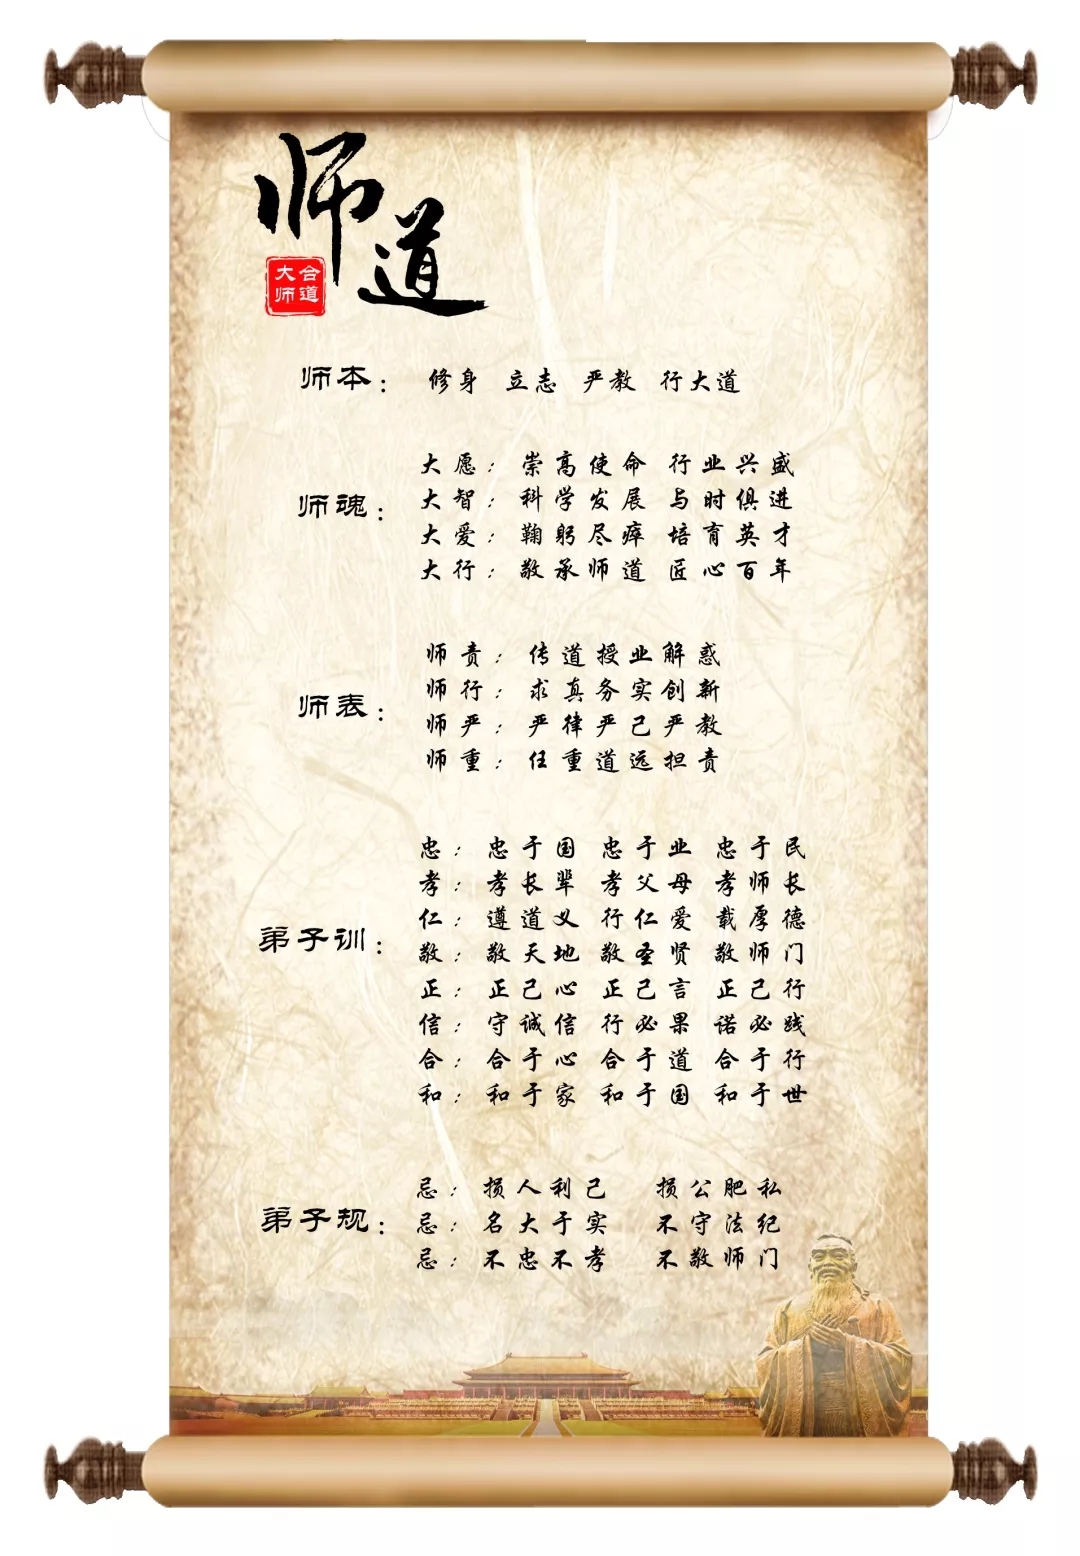 师道
大师
合道
师本： 修身 立志 严教 行大道
师魂：
大愿：崇高使命 行业兴盛
大智：科学发展 与时俱进
大爱：鞠躬尽瘁 培育英才
大行：敬承师道 匠心百年
师表：
师责：传道授业解惑
师行：求真务实创新
师严：严律严己严教
师重：任重道远担责
弟子训：
忠：忠于国 忠于业 忠于民
孝：孝长辈 孝父母 孝师长
仁：遵道义 行仁爱 载厚德
敬：敬天地 敬圣贤 敬师门
正：正己心 正己言 正己行
信：守诚信 行必果 诺必践
合：合于心 合于道 合于行
和：和于家 和于国 和于世
弟子规：
忌：损人利己 损公肥私
忌：名大于实 不守法纪
忌：不忠不孝 不敬师门